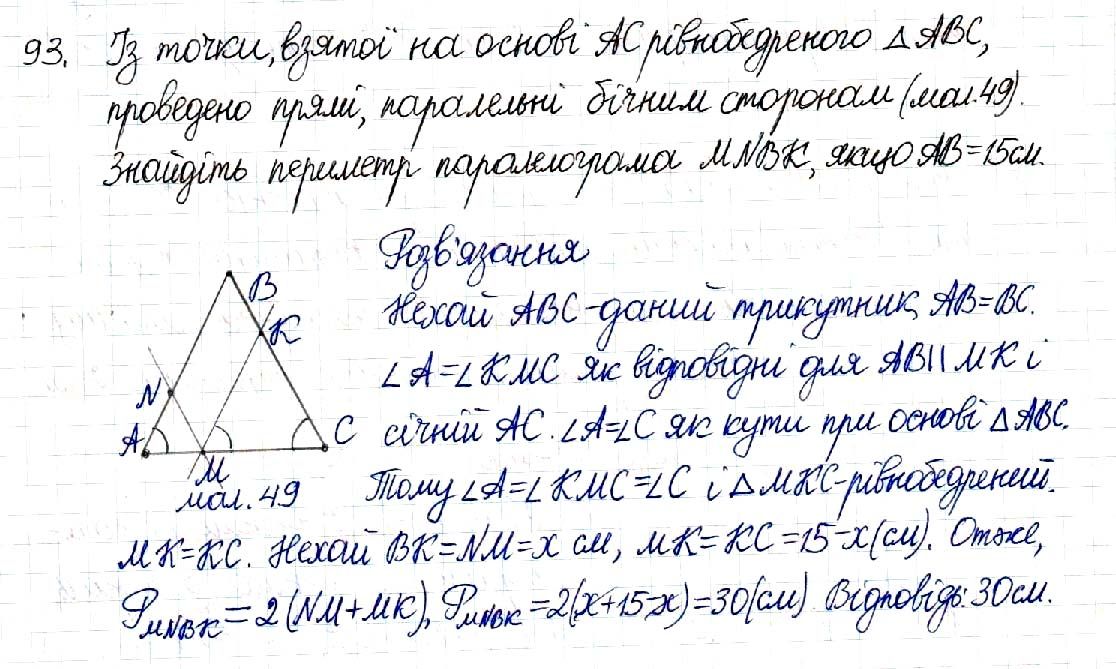 93. Із точки, взятої на основі AC рівнобедреного △ABC,
проведено прямі, паралельні бічним сторонам (мал.49).
Знайдіть периметр паралелограма MNBK, якщо AB=15см.
Розв'язання
Нехай ABC-даний трикутник, AB=BC.
∠A=∠KMC як відповідні для AB||MK і
січній AC. ∠A=∠C як кути при основі △ABC.
Тому ∠A=∠KMC=∠C і △MKC-рівнобедрений.
MK=KC. Нехай BK=NM=x см, MK=KC=15-x(см). Отже,
P MNBK = 2(NM+MK), P MNBK = 2(x+15-x)=30(см) Відповідь: 30см.
B
K
N
A
C
M
мал.49